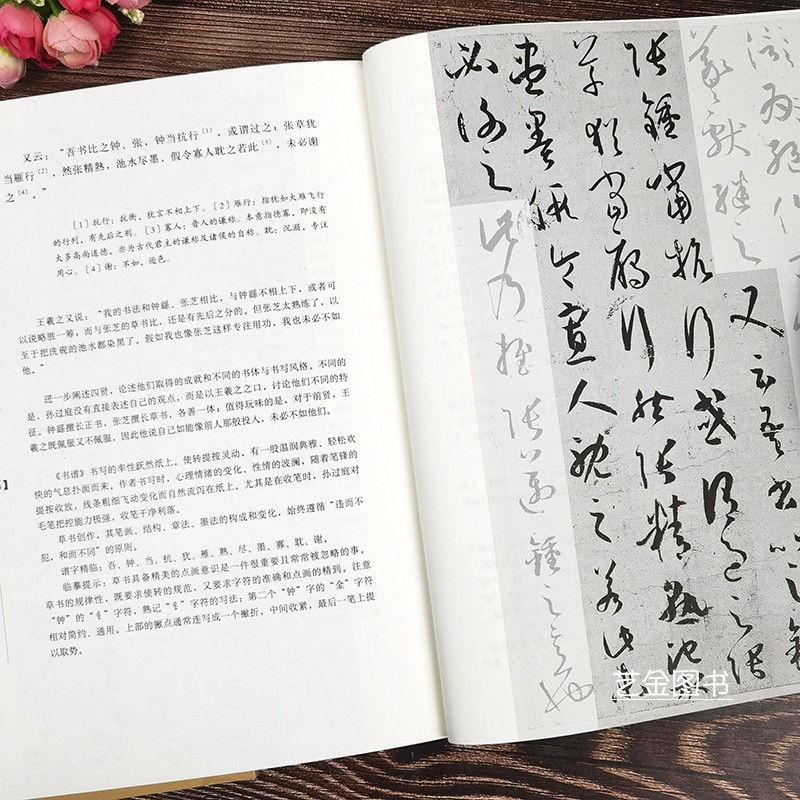 又云：“吾书比之钟、张，钟当抗行[1]，或谓过之；张草犹
当雁行[2]，然张精熟，池水尽墨，假令寡人耽之若此[3]，未必谢
之[4]。”
[1] 抗行：抗衡，犹言不相上下。[2] 雁行：指犹如大雁飞行
的行列，有先后之别。[3] 寡人：晋人的谦称。本意指德寡，即没有
太多高尚道德，亦为古代君主的谦称及诸侯的自称。耽：沉溺，专注
用心。[4] 谢：不如，逊色。
王羲之又说：“我的书法和钟繇、张芝相比，与钟繇不相上下，或者可
以说略胜一筹；而与张芝的草书比，还是有先后之分的。但张芝太熟练了，以
至于把洗砚的池水都染黑了。假如我也像张芝这样专注用功，我也未必不如
他。”
进一步阐述四贤，论述他们取得的成就和不同的书体与书写风格。不同的
是，孙过庭没有直接表述自己的观点，而是以王羲之之口，讨论他们不同的特
征。钟繇擅长正书，张芝擅长草书，各善一体；值得玩味的是，对于前贤，王
羲之既佩服又不佩服，因此他说自己如能像前人那般投入，未必不如他们。
《书谱》书写的率性跃然纸上。使转提按灵动，有一股温润典雅、轻松欢
快的气息扑面而来。作者书写时，心理情绪的变化、性情的波澜，随着笔锋的
提按收放，线条粗细飞动变化而自然流泻在纸上。尤其是在收笔时，孙过庭对
毛笔把控能力极强，收笔干净利落。
草书创作，其笔画、结构、章法、墨法的构成和变化，始终遵循“违而不
犯，和而不同”的原则。
谱字精临：吾、钟、当、抗、犹、雁、熟、尽、墨、寡、耽、谢。
临摹提示：草书具备精美的点画意识是一件很重要且常常被忽略的事。
草书的规律性，既要求使转的规范，又要求字符的准确和点画的精到。注意
“钟”的“钅”字符，熟记“钅”字符的写法；第二个“钟”字的“金”字符
相对简约、通用。上部的撇点通常连写成一个撇折，中间收紧，最后一笔上提
以取势。
羲献继之
又云吾书比之钟
张钟当抗行或谓过之张
草犹当雁行然张精熟池水
尽墨假令寡人耽之若此
必谢之
此乃推张迈钟之意
艺金图书